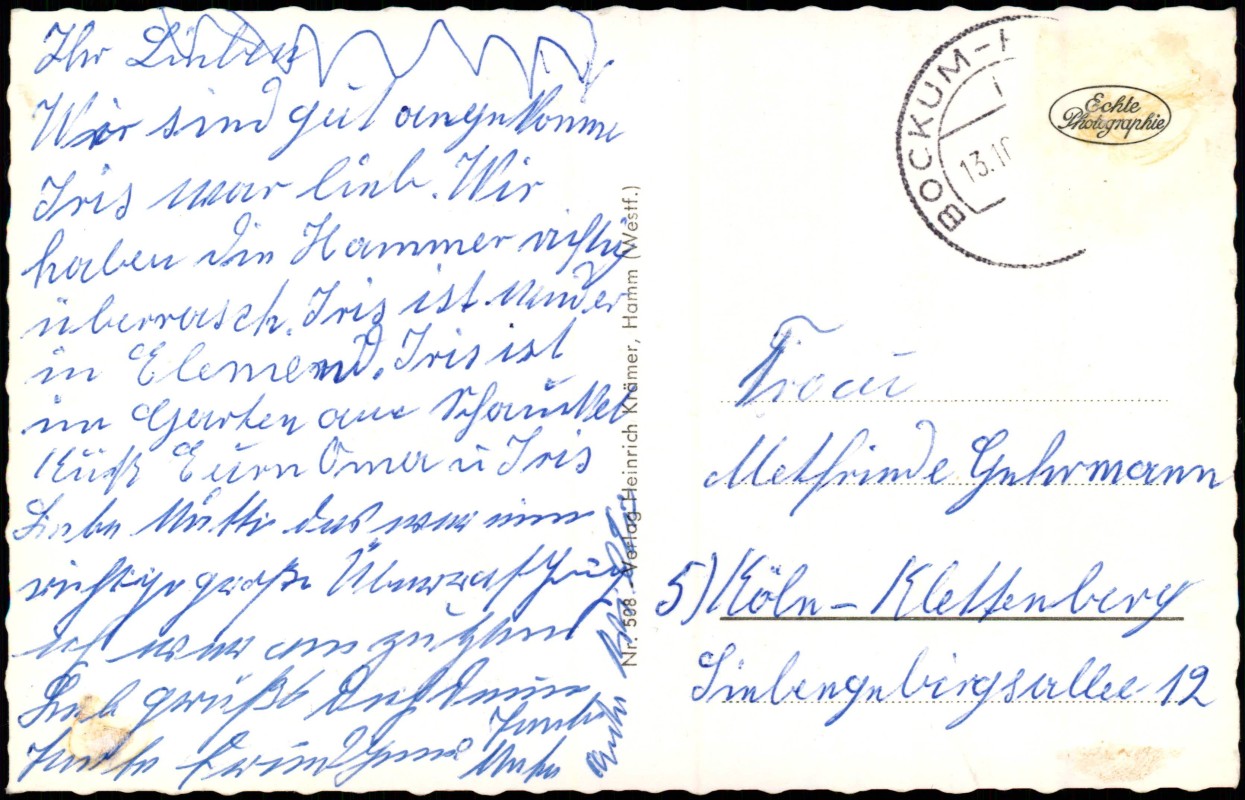 Ihr Lieben
Wir sind gut angekomme
Iris war lieb. Wir
haben die Hammer richtig
überrasch. Iris ist wider
in Element. Iris ist
im Garten auf Schaukel
Küße Eure Oma u Iris
Liebe Mutti das war eine
richtige große Überraschung
ich war am
Lieb grüßt Dich Deine
Tante
Nr. 508 Verlag Heinrich Krämer, Hamm (Westf.)
BOCKUM-H
13.10
Echte
Photographie
Frau
Metfriede Guhrmann
5) Köln – Klettenberg
Siebengebirgsallee 12